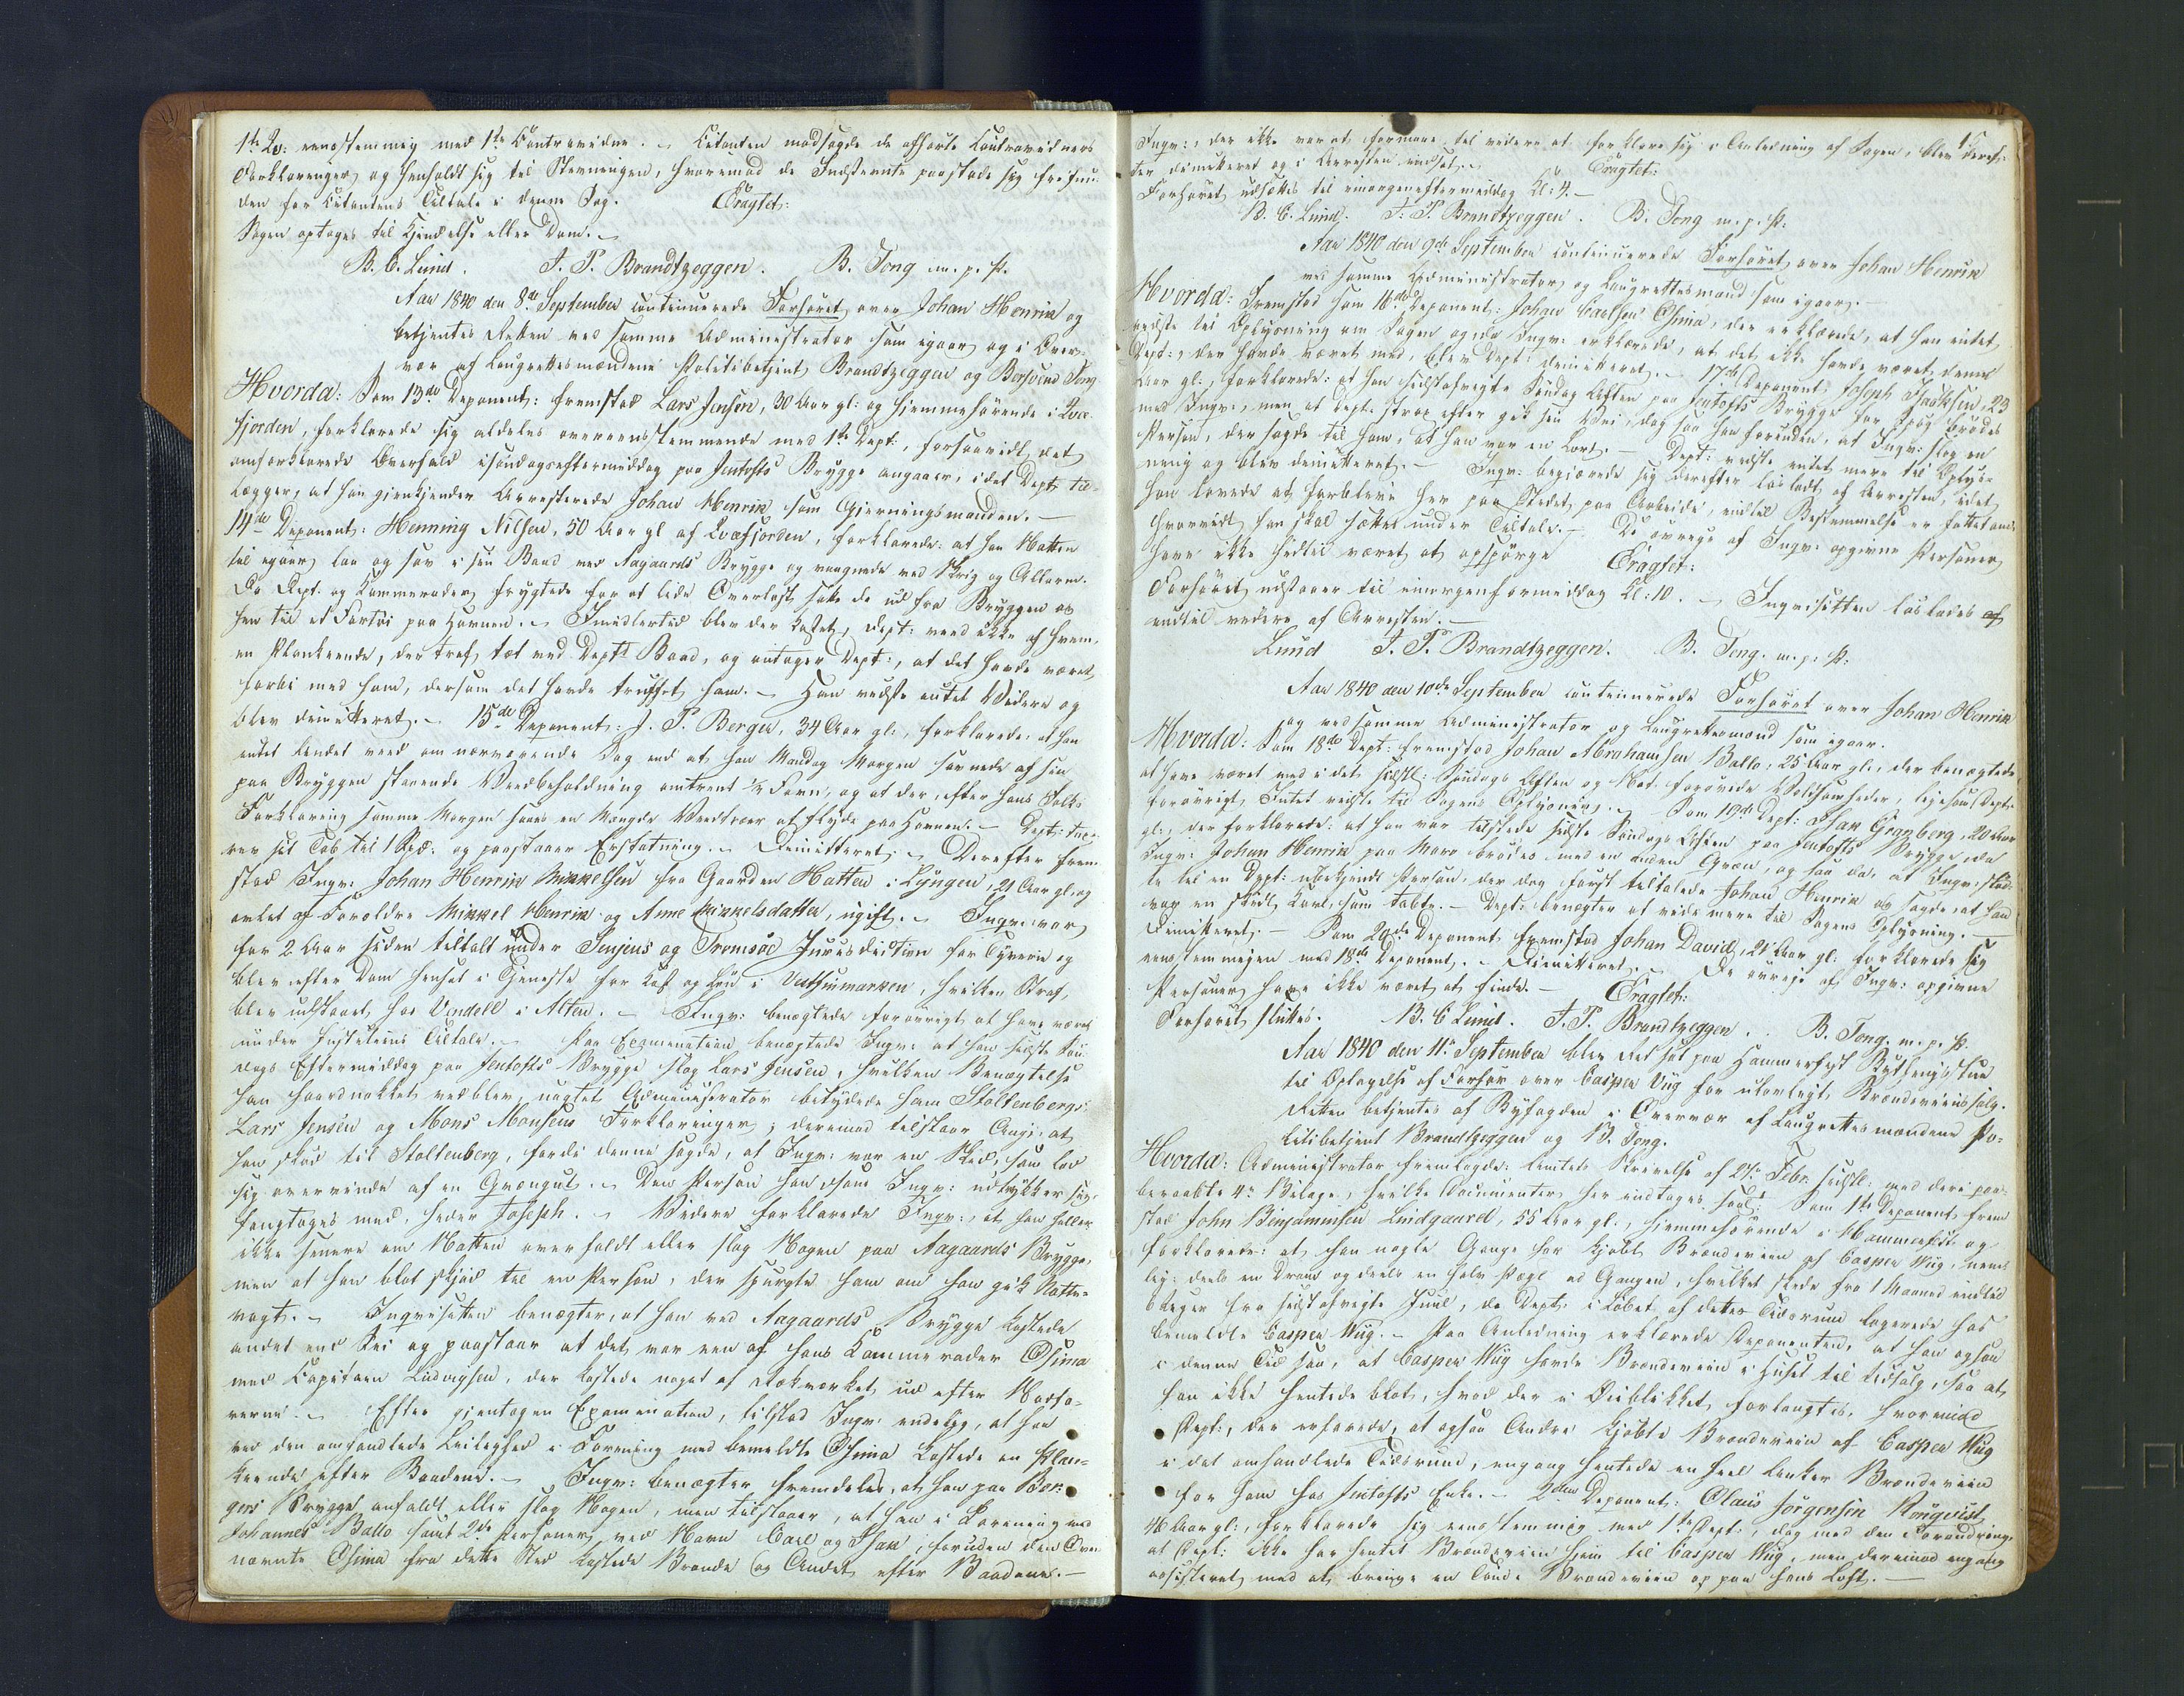 1ste Qv: eensstemmig med 1ste Contravidne. – Citanten modsagde de afhørte Contravidners
Forklaringer og henholdt sig til Stevningen, hvorimod de Indstevnte paastode sig frifun-
den for Citantens Tiltale i denne Sag. Eragtet:
Sagen optages til Kjendelse eller Dom. –
B. C. Lund. J. P. Brandtzeggen. B. Tong m. p. P.
Aar 1840 den 8de September continuerede Forhøret over Johan Henrik og
betjentes Retten ved samme Administrator som igaar og i Over-
vær af Laugrettesmændene Politibetjent Brandtzeggen og Borsvend Tong
Hvorda: Som 13de Deponent: fremstod Lars Jensen, 30 Aar gl: og hjemmehørende i Qvæ-
fjorden, forklarede sig aldeles overeensstemmende med 1ste Dept:, forsaavidt det
omforklarede Overfald isøndagseftermiddag paa Jentofts Brygge angaaer, idet Dept: til-
lægger, at han gjenkjender Arresterede Johan Henrik som Gjerningsmanden. –
14de Deponent: Henning Nilsen, 50 Aar gl af Qvæfjorden, forklarede: at han Natten
til igaar laa og sov i sin Baad ved Aagaards Brygge og vaagnede ved Skrig og Allarm.
Da Dept. og Kammerader frygtede for at lide Overlast satte de ud fra Bryggen og
hen til et Fartøi paa Havnen. – Imidlertid blev der kastet, Dept: veed ikke af hvem,
en Plankeende, der traf tæt ved Depts Baad, og antager Dept:, at det havde været
forbi med ham, dersom det havde truffet ham. – Han vidste intet Videre og
blev demitteret. – 15de Deponent: J. P. Berger, 34 Aar gl:, forklarede: at han
intet Andet veed om nærværende Sag end at han Mandag Morgen savnede af sin
paa Bryggen staaende Vedbeholdning omtrent 1/2 Favn, og at der, efter hans Folks
Forklaring samme Morgen saaes en Mængde Vedtræer at flyde paa Havnen. – Dept: tax-
erer sit Tab til 1 Spd: og paastaaer Erstatning. – Demitteret. – Derefter frem-
stod Inqv: Johan Henrik Mikkelsen fra Gaarden Hatten i Lyngen, 21 Aar gl. og
avlet af Forældre Mikkel Henrik og Anne Mikkelsdatter, ugift. – Inqv: var
for 2 Aar siden tiltalt under Senjens og Tromsøe Jurisdiction for Tyverie og
blev efter Dom hensat i Tjeneste for Kost og Løn i Vestfinmarken, hvilken Straf
blev udstaaet hos Vendell i Alten. – Inqv: benægtede forøvrigt at have været
under Justitiens Tiltale. – Paa Examination benægtede Inqv: at han sidste Søn-
dags Eftermiddag paa Jentofts Brygge slog Lars Jensen, hvilken Benægtelse
han haardnakket vedblev, uagtet Administrator betydede ham Stoltenbergs,
Lars Jensen og Mons Monsens Forklaringer; derimod tilstaar Angj: at
han stød til Stoltenberg, fordi denne sagde, at Inqv: var en Skid, som lod
sig overvinde af en Qvængut. – Den Person han, som Inqv: udtrykker sig,
fangtoges med, heder Joseph. – Videre forklarede Inqv:, at han heller
ikke senere om Natten overfaldt eller slog Nogen paa Aagaards Brygge,
men at han blot skjød til en Person, der spurgte ham om han gik Natte-
vagt. – Inqvisiten benægter, at han ved Aagaards Brygge kastede
andet end Sei og paastaar at det var een af hans Kammerader Osima
med Capitain Ludvigsen, der kastede noget af Rækværket ud efter Nordfa-
rerne. – Efter gjentagen Examination, tilstod Inqv: endelig, at han
ved den omhandlede Leilighed i Forening med bemeldte Osima kastede en Plan-
keende efter Baadene. – Inqv: benægter fremdeles, at han paa Ber-
gers Brygge anfaldt eller slog Nogen, men tilstaaer, at han i Forening med
Johannes Ballo samt 2de Personer, ved Navn Carl og Isak, foruden den Oven-
nævnte Osima fra dette Sted kastede Brænde og Andet efter Baadene. –
Inqv:, der ikke var at formaae til videre at forklare sig i Anledning af Sagen, blev deref-
ter demitteret og i Arresten indsat. – Eragtet:
Forhøret udsættes til imorgeneftermiddag Kl: 4. –
B. C. Lund. J. P. Brandtzeggen. B. Tong m. p. P.
Aar 1840 den 9de September continuerede Forhøret over Johan Henrik
ved samme Administrator og Laugrettesmænd som igaar. –
Hvorda: Fremstod som 16de Deponent: Johan Carlsen Osima, der erklærede, at han intet
vidste til Oplysning om Sagen og da Inqv: erklærede, at det ikke havde været denne
Dept:, der havde været med, blev Dept: demitteret. – 17de Deponent, Joseph Isaksen, 23
Aar gl:, forklarede: at han sidstafvigte Søndag Aften paa Jentofts Brygge for Spøg brødes
med Inqv:, men at Dept: strax efter gik sin Vei, dog saa han forinden, at Inqv: slog en
Person, der sagde til ham, at han var en Lort. – Dept: vidste intet mere til Oplys-
ning og blev demitteret. – Inqv: begjærede sig derefter løsladt af Arresten, idet
han lovede at forblive her paa Stedet paa Arbeide, indtil Bestemmelse er fattet om
hvorvidt han skal sættes under Tiltale. – De øvrige af Inqv: opgivne Personer
have ikke hidtil været at opspørge Eragtet:
Forhøret udstaaer til imorgenformiddag Kl: 10. – Inqvisitten løslades af
indtil videre af Arresten. –
Lund J. P. Brandtzeggen. B. Tong. m. p. P.
Aar 1840 den 10de September continuerede Forhøret over Johan Henrik
og ved samme Administrator og Laugrettesmænd som igaar.
Hvorda: Som 18de Dept: fremstod Johan Abrahamsen Ballo, 25 Aar gl:, der benægtede
at have været med i det sidstl: Søndags Aften og Nat forøvede Voldsomheder, ligesom Dept:
forøvrigt Intet vidste til Sagens Oplysning. – Som 19de Dept: Isak Granberg, 20 Aar
gl:, der forklarede: at han var tilstede sidste Søndags Aften paa Jentofts Brygge, da
Inqv: Johan Henrik paa Moro brødes med en anden Qvæn, og saa da, at Inqv: stød-
te til en Dept: ubekjendt Person, der dog først tiltalede Johan Henrik og sagde, at han
var en skidt Karl, som tabte. – Dept: benægter at vide mere til Sagens Oplysning. –
Demitteret. – Som 20de Deponent fremstod Johan David, 21 Aar gl: forklarede sig
eenstemmigen med 18de Deponent. – Demitteret. – De øvrige af Inqv: opgivne
Personer have ikke været at finde. – Eragtet:
Forhøret sluttes. B. C Lund. J. P. Brandtzeggen. B. Tong. m. p. P.
Aar 1840 den 11te September blev Ret sat paa Hammerfest Bythingsstue
til Optagelse af Forhør over Casper Wiig for ulovligt Brændeviinssalg.
Retten betjentes af Byfogden i Overvær af Laugrettesmændene Po-
litibetjent Brandtzeggen og B. Tong.
Hvorda: Administrator fremlagde: Amtets Skrivelse af 27de Febr: sidstl: med deri paa-
beraabte 4re Bilage, hvilke Documenter her indtages saal: Som 1ste Deponent frem
stod John Benjaminsen Lindgaard, 55 Aar gl:, hjemmehørende i Hammerfest og
forklarede: at han nogle Gange har kjøbt Brændeviin af Casper Wiig, nem-
lig: deels en Dram og deels en halv Pægl ad Gangen, hvilket skede fra 1 Maaned indtil
8 Dager fra sidstafvigte Juul, da Dept: i Løbet af dette Tidsrum logerede hos
bemeldte Casper Wiig. – Paa Anledning erklærede Deponenten, at han ogsaa
i denne Tid saa, at Casper Wiig havde Brændeviin i Huset til Udsalg, saa at
han ikke hentede blot, hvad der i Øieblikket forlangtes, hvorimod
Dept:, der erfarede, at ogsaa Andre kjøbte Brændeviin af Casper Wiig
i det omhandlede Tidsrum, engang hentede en heel Anker Brændeviin
for ham hos Jentofts Enke. – 2den Deponent: Claus Jørgensen Rønqvist
48 Aar gl:, forklarede sig eenstemmig med 1ste Dept:, dog med den Forandring,
at Dept: ikke har hentet Brændeviin hjem til Casper Wiig, men derimod engang
assisteret med at bringe en Tønde Brændeviin op paa hans Loft. –